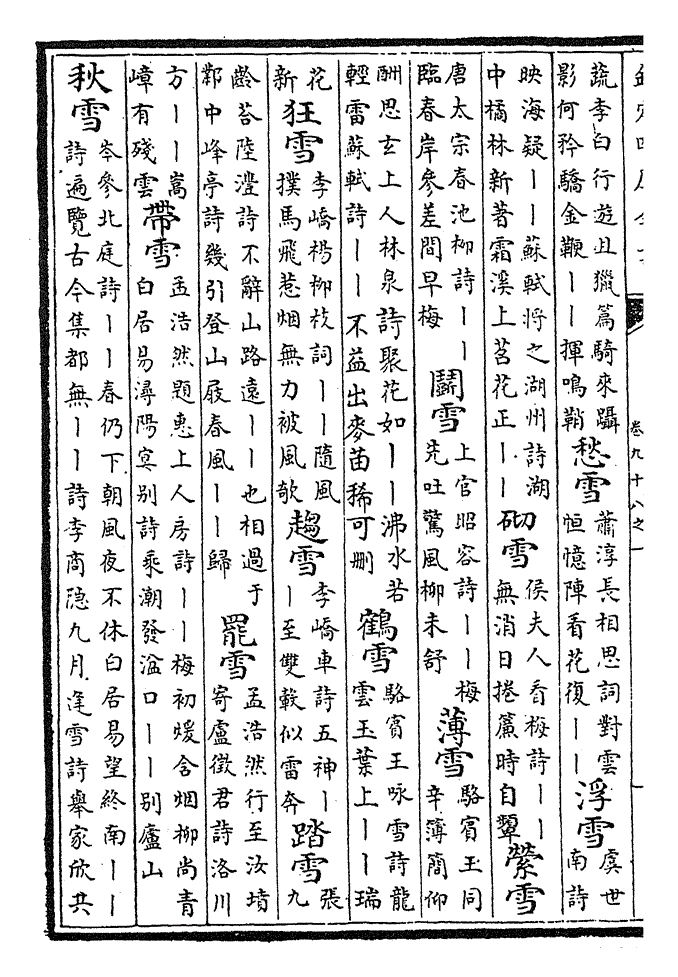 卷九十八之一
蔬李白行遊且獵篇騎來躡
影何矜驕金鞭丨丨揮鳴鞘
愁雪
蕭淳長相思詞對雲
恒憶陣看花復丨丨
浮雪
虞世
南詩
映海疑丨丨蘇軾將之湖州詩湖
中橘林新著霜溪上苕花正丨丨
砌雪
侯夫人看梅詩丨丨
無消日捲簾時自顰
縈雪
唐太宗春池柳詩丨丨
臨春岸參差間早梅
鬭雪
上官昭容詩丨丨梅
先吐驚風柳未舒
薄雪
駱賓王同
辛簿簡仰
酬思玄上人林泉詩聚花如丨丨沸水若
輕雷蘇軾詩丨丨不益出麥苗稀可删
鶴雪
駱賓王咏雪詩龍
雲玉葉上丨丨瑞
花
新
狂雪
李嶠楊柳枝詞丨丨隨風
撲馬飛惹烟無力被風欹
趨雪
李嶠車詩五神丨
丨至雙轂似雷奔
踏雪
張
九
齡荅陸澧詩不辭山路遠丨丨也相過于
鄴中峰亭詩幾引登山屐春風丨丨歸
罷雪
孟浩然行至汝墳
寄盧徵君詩洛川
方丨丨嵩
嶂有殘雲
帶雪
孟浩然題惠上人房詩丨丨梅初煖含烟柳尚青
白居易潯陽宴别詩乘潮發湓口丨丨别廬山
秋雪
岑參北庭詩丨丨春仍下朝風夜不休白居易望終南丨丨
詩遍覽古今集都無丨丨詩李商隐九月逢雪詩舉家欣共